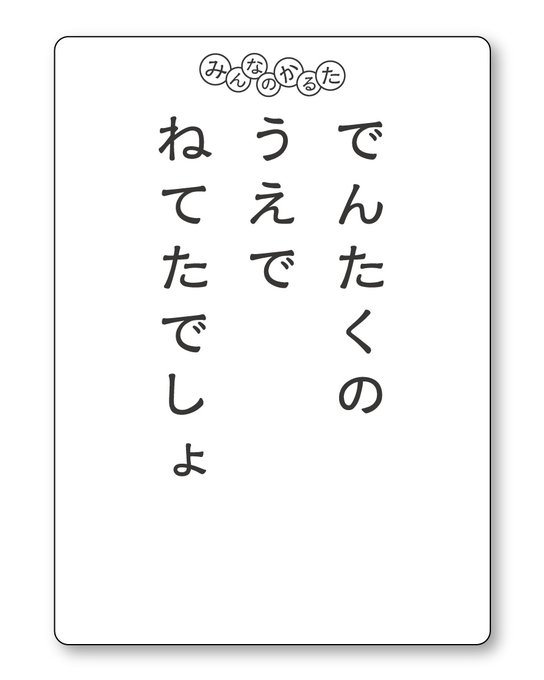 みんなのかるた
でんたくの
うえで
ねてたでしょ